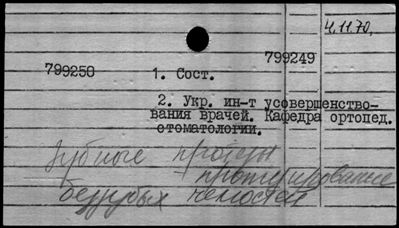 4.11.70,
799249
799250 1. Сост.
2. Укр. ин-т усовершенство-
вания врачей. Кафедра ортопед.
стоматологии.
Зубные протезы
протезирование
беззубых челюстей